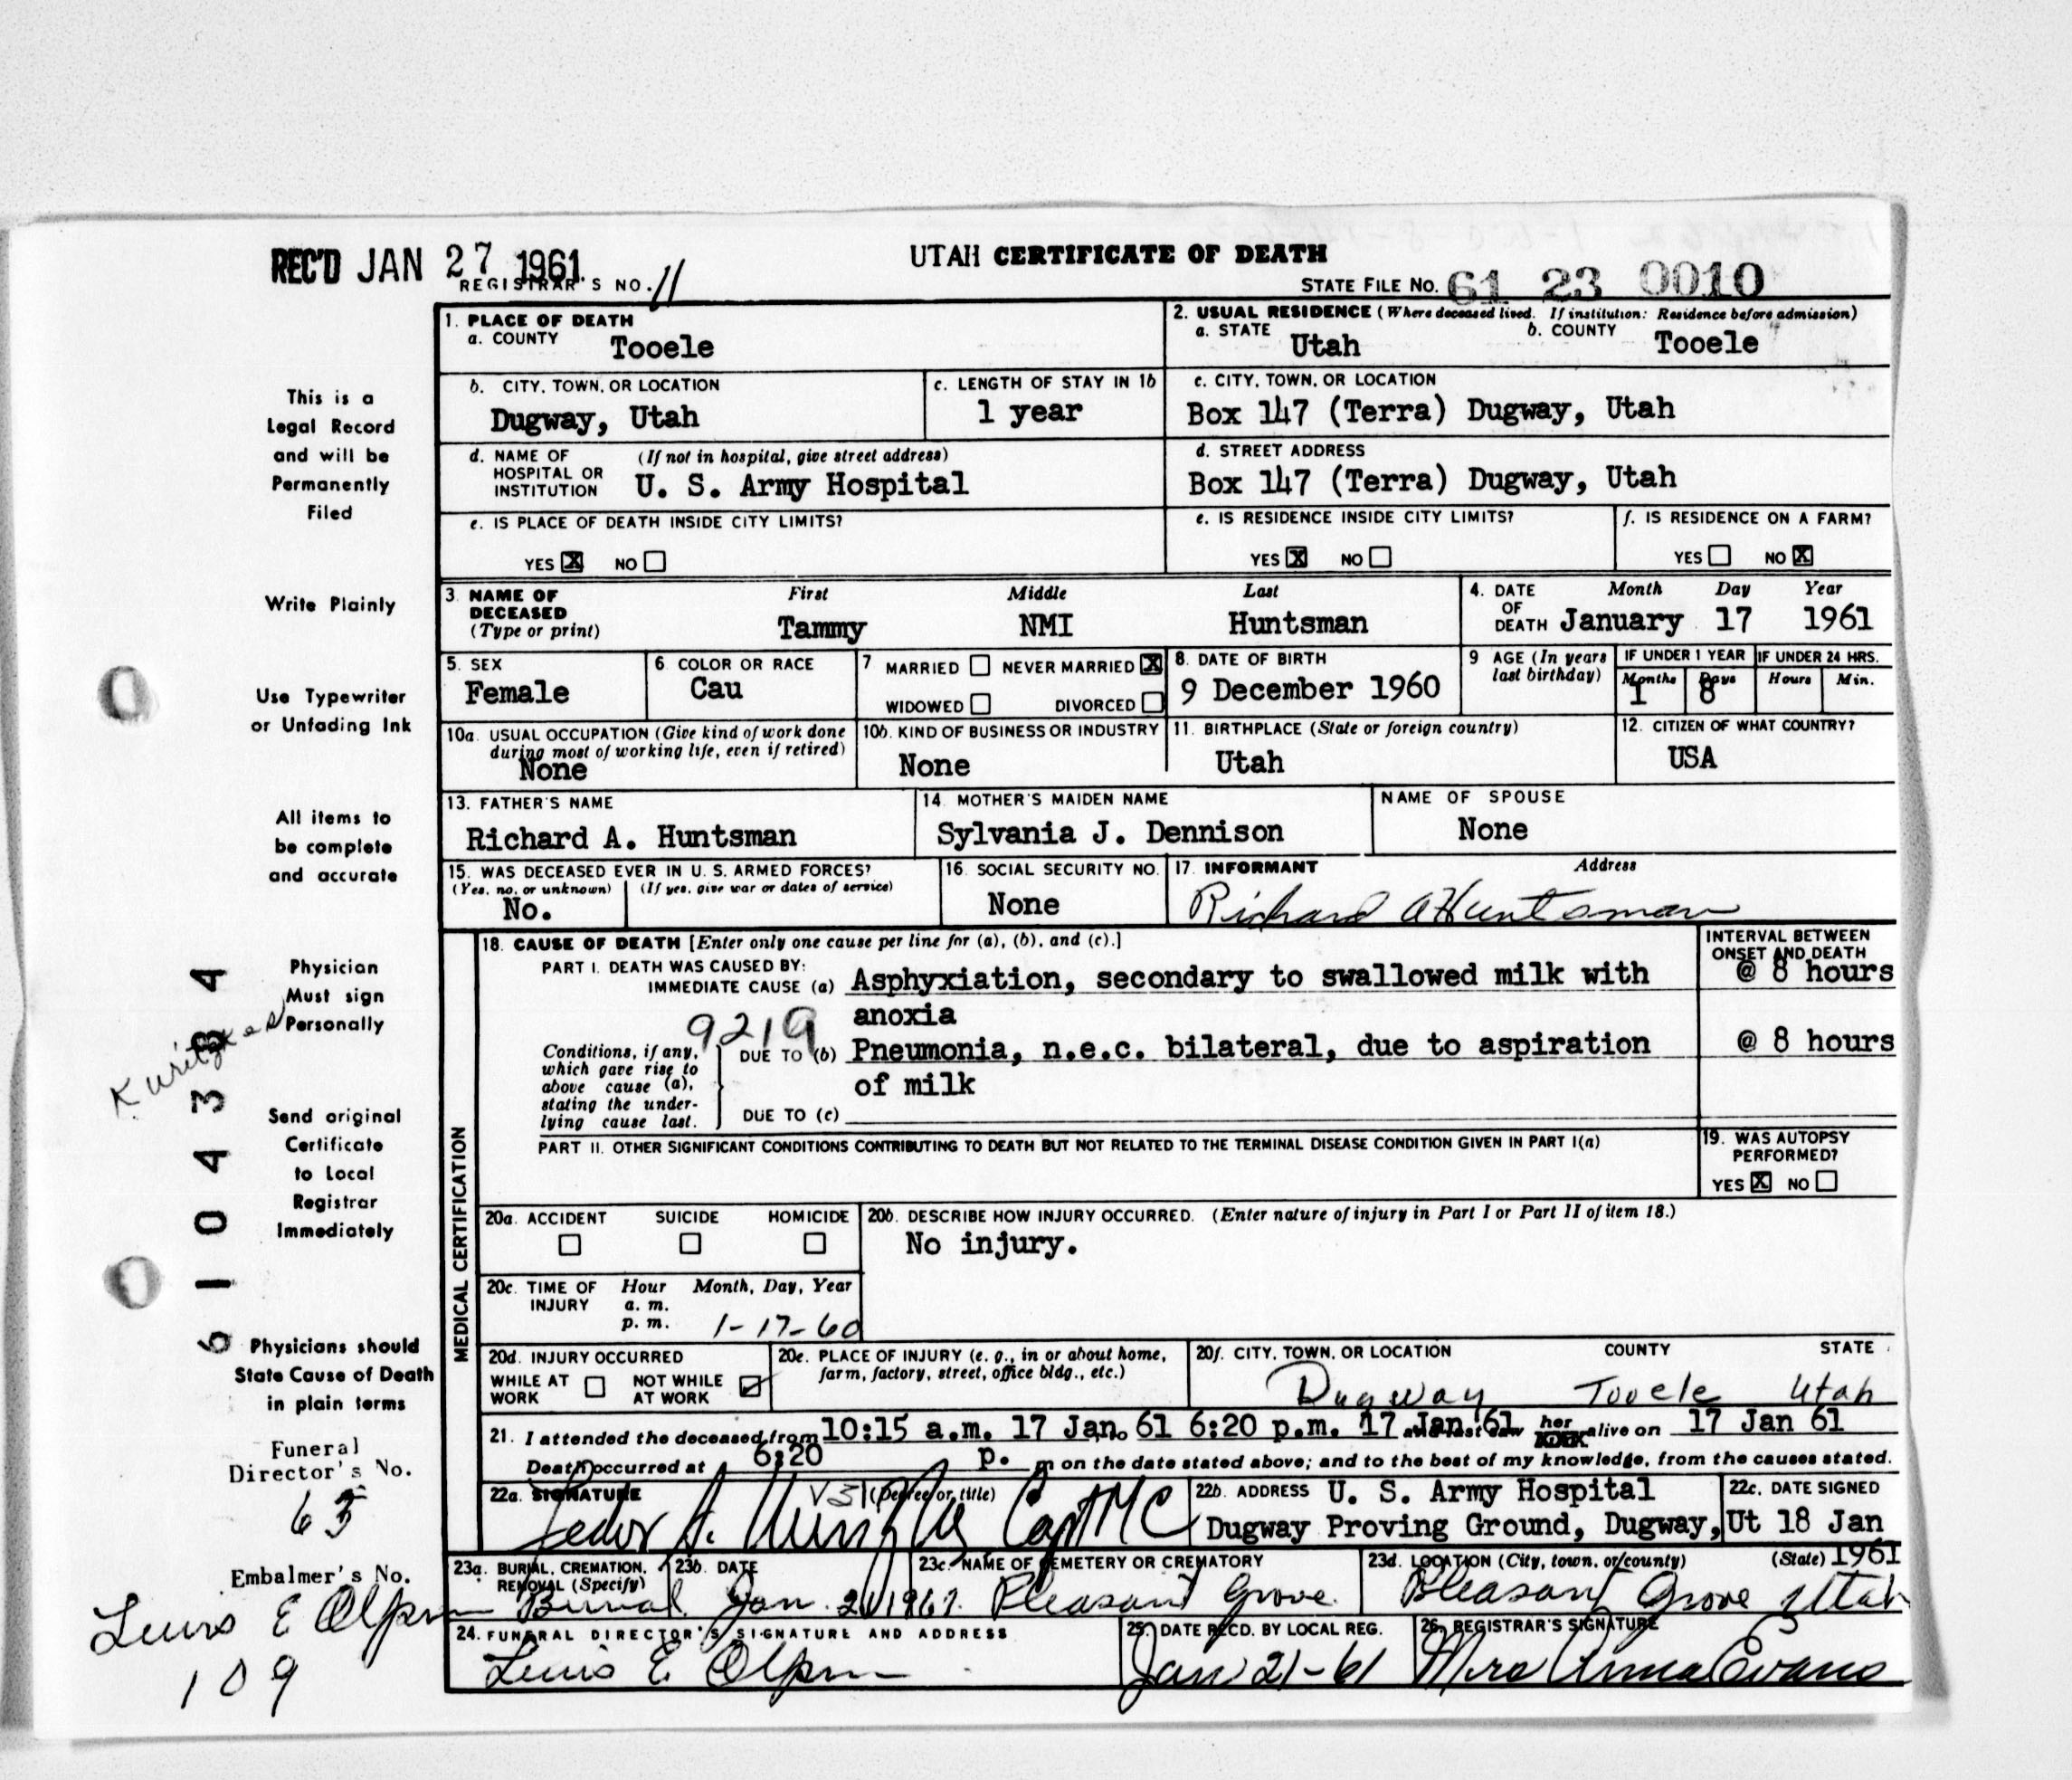 REC'D JAN 27 1961
UTAH CERTIFICATE OF DEATH
REGISTRAR'S NO. 11
STATE FILE NO. 61 23 0010
This is a
Legal Record
and will be
Permanently
Filed
Write Plainly
Use Typewriter
or Unfading Ink
All items to
be complete
and accurate
Physician
Must sign
Personally
Send original
Certificate
to Local
Registrar
Immediately
Physicians should
State Cause of Death
in plain terms
Funeral
Director's No.
63
Embalmer's No.
Lewis E Olpin
109
61 04384
1. PLACE OF DEATH
a. COUNTY Tooele
2. USUAL RESIDENCE (Where deceased lived. If institution: Residence before admission)
a. STATE Utah b. COUNTY Tooele
b. CITY, TOWN, OR LOCATION
Dugway, Utah
c. LENGTH OF STAY IN 1b
1 year
c. CITY, TOWN, OR LOCATION
Box 147 (Terra) Dugway, Utah
d. NAME OF HOSPITAL OR INSTITUTION (If not in hospital, give street address)
U. S. Army Hospital
d. STREET ADDRESS
Box 147 (Terra) Dugway, Utah
e. IS PLACE OF DEATH INSIDE CITY LIMITS?
YES X NO
e. IS RESIDENCE INSIDE CITY LIMITS?
YES X NO
f. IS RESIDENCE ON A FARM?
YES NO X
3. NAME OF DECEASED (Type or print)
First Middle Last
Tammy NMI Huntsman
4. DATE OF DEATH Month Day Year
January 17 1961
5. SEX
Female
6. COLOR OR RACE
Cau
7 MARRIED NEVER MARRIED X
WIDOWED DIVORCED
8. DATE OF BIRTH
9 December 1960
9 AGE (In years last birthday)
IF UNDER 1 YEAR IF UNDER 24 HRS.
Months Days Hours Min.
1 8
10a. USUAL OCCUPATION (Give kind of work done during most of working life, even if retired)
None
10b. KIND OF BUSINESS OR INDUSTRY
None
11. BIRTHPLACE (State or foreign country)
Utah
12. CITIZEN OF WHAT COUNTRY?
USA
13. FATHER'S NAME
Richard A. Huntsman
14. MOTHER'S MAIDEN NAME
Sylvania J. Dennison
NAME OF SPOUSE
None
15. WAS DECEASED EVER IN U. S. ARMED FORCES?
(Yes, no, or unknown) (If yes, give war or dates of service)
No.
16. SOCIAL SECURITY NO.
None
17. INFORMANT Address
Richard A Huntsman
MEDICAL CERTIFICATION
18. CAUSE OF DEATH [Enter only one cause per line for (a), (b), and (c).]
INTERVAL BETWEEN ONSET AND DEATH
PART I. DEATH WAS CAUSED BY:
IMMEDIATE CAUSE (a) Asphyxiation, secondary to swallowed milk with @ 8 hours
anoxia
9219
Conditions, if any, which gave rise to above cause (a), stating the underlying cause last.
DUE TO (b) Pneumonia, n.e.c. bilateral, due to aspiration @ 8 hours
of milk
DUE TO (c)
PART II. OTHER SIGNIFICANT CONDITIONS CONTRIBUTING TO DEATH BUT NOT RELATED TO THE TERMINAL DISEASE CONDITION GIVEN IN PART I(a)
19. WAS AUTOPSY PERFORMED?
YES X NO
20a. ACCIDENT SUICIDE HOMICIDE
20b. DESCRIBE HOW INJURY OCCURRED. (Enter nature of injury in Part I or Part II of item 18.)
No injury.
20c. TIME OF INJURY Hour Month, Day, Year
a. m.
p. m. 1-17-60
20d. INJURY OCCURRED
WHILE AT WORK NOT WHILE AT WORK
20e. PLACE OF INJURY (e. g., in or about home, farm, factory, street, office bldg., etc.)
20f. CITY, TOWN, OR LOCATION COUNTY STATE
Dugway Tooele Utah
21. I attended the deceased from 10:15 a.m. 17 Jan. 61 6:20 p.m. 17 Jan 61 and last saw her alive on 17 Jan 61
Death occurred at 6:20 p. m on the date stated above; and to the best of my knowledge, from the causes stated.
22a. SIGNATURE (Degree or title)
Capt MC
22b. ADDRESS U. S. Army Hospital
Dugway Proving Ground, Dugway, Ut
22c. DATE SIGNED
18 Jan 1961
23a. BURIAL, CREMATION, REMOVAL (Specify)
Burial
23b. DATE
Jan. 21 1961
23c. NAME OF CEMETERY OR CREMATORY
Pleasant Grove
23d. LOCATION (City, town, or county) (State)
Pleasant Grove Utah
24. FUNERAL DIRECTOR'S SIGNATURE AND ADDRESS
Lewis E. Olpin
25. DATE RECD. BY LOCAL REG.
Jan 21-61
26. REGISTRAR'S SIGNATURE
Mrs Anna Evans